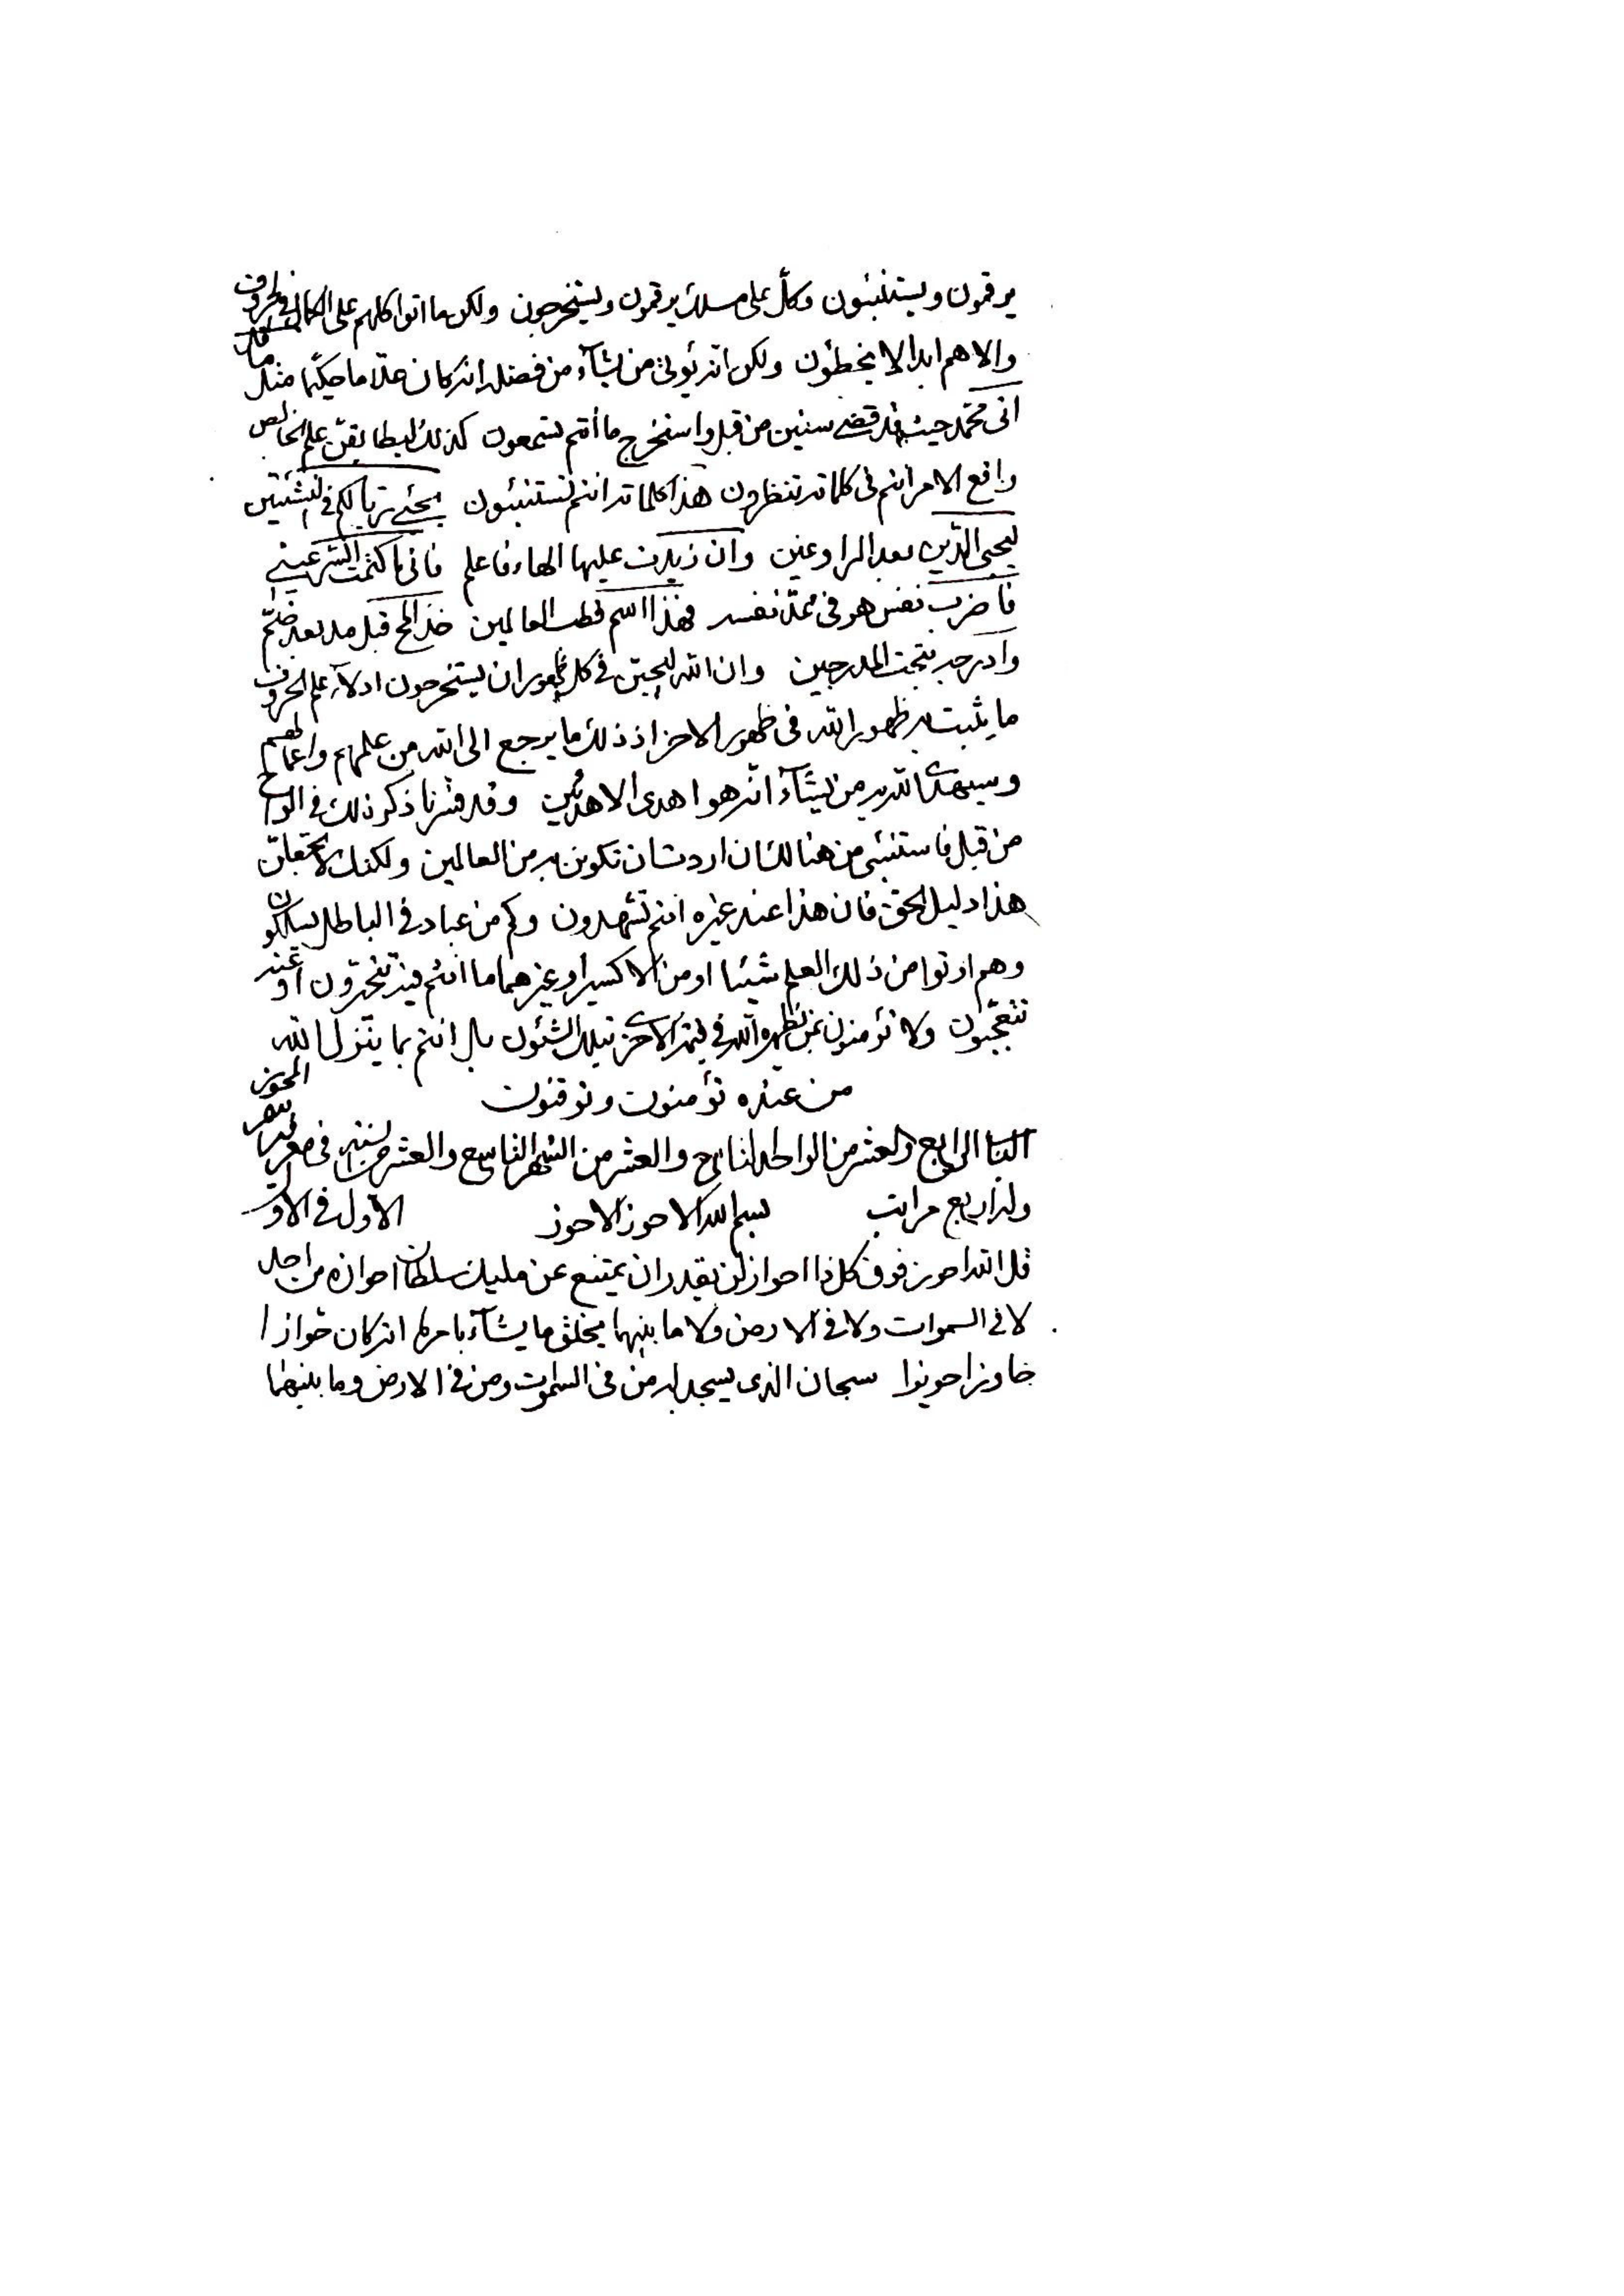 يرقمون ويستنبئون وكل على مسلك يرقمون ويستخرجون ولكن ما اتوا كلهم على الكمال في الحروف
والا هم ابدا لا يخطئون ولكن الله يؤتى من يشآء من فضله انه كان علاما حكيما مثل ما قد
اتى محمد حيث قد قضى سنين من قبل واستخرج ما أنتم تسمعون كذلك ليطابقن علم الخالص
واقع الامر انتم فى كلماته تنظرون هذا كلماته انتم تستنبئون يجئ رب لكم فى النشئتين
ليحيى الدين بعد الرا وغين وان زيدت عليها الهاء فاعلم فانى ما كتمت السر عينى
فاضرب نفس هو فى عد نفسه فهذا اسم قطب العالمين خذ المح قبل مد بعد ضم
وادرجه بتحت المدرجين وان الله ليحبن فى كل ظهور ان يستخرجون ادلآء علم الحروف
ما يثبت به ظهور الله فى ظهور الاخر اذ ذلك ما يرجع الى الله من علمهم واعمالهم
وسيهدى الله به من يشآء انه هو اهدى الاهدئين وقد فسرنا ذكر ذلك فى الواح
من قبل فاستنبئ من هنالك ان اردت ان تكونن به من العالمين ولكنك لا تجعلن
هذا دليل الحق فان هذا عند غيره انتم تشهدون وكم من عباد فى الباطل يسلكون
وهم اوتوا من ذلك العلم شيئا او من الاكسير او غيرهما ما انتم فيه تتحيرون او عنه
تتعجبون ولا تؤمنون بمن يظهره الله فى قيمة الاخرى بتلك الشئون بل انتم بما ينزل الله
من عنده تؤمنون وتوقنون
الباب الرابع والعشر من الواحد الثانى والعشر من الشهر التاسع والعشر من السنة فى معرفة اسم المحوز
وله اربع مراتب بسم الله الاحوز الاحوز الاول فى الاول
قل الله احوز فوق كل ذا احواز لن يقدر ان يمتنع عن مليك سلطان احوازه من احد
لا فى السموات ولا فى الارض ولا ما بينهما يخلق ما يشآء بامره انه كان حوازا
حاوزا حويزا سبحان الذى يسجد له من فى السموات ومن فى الارض وما بينهما